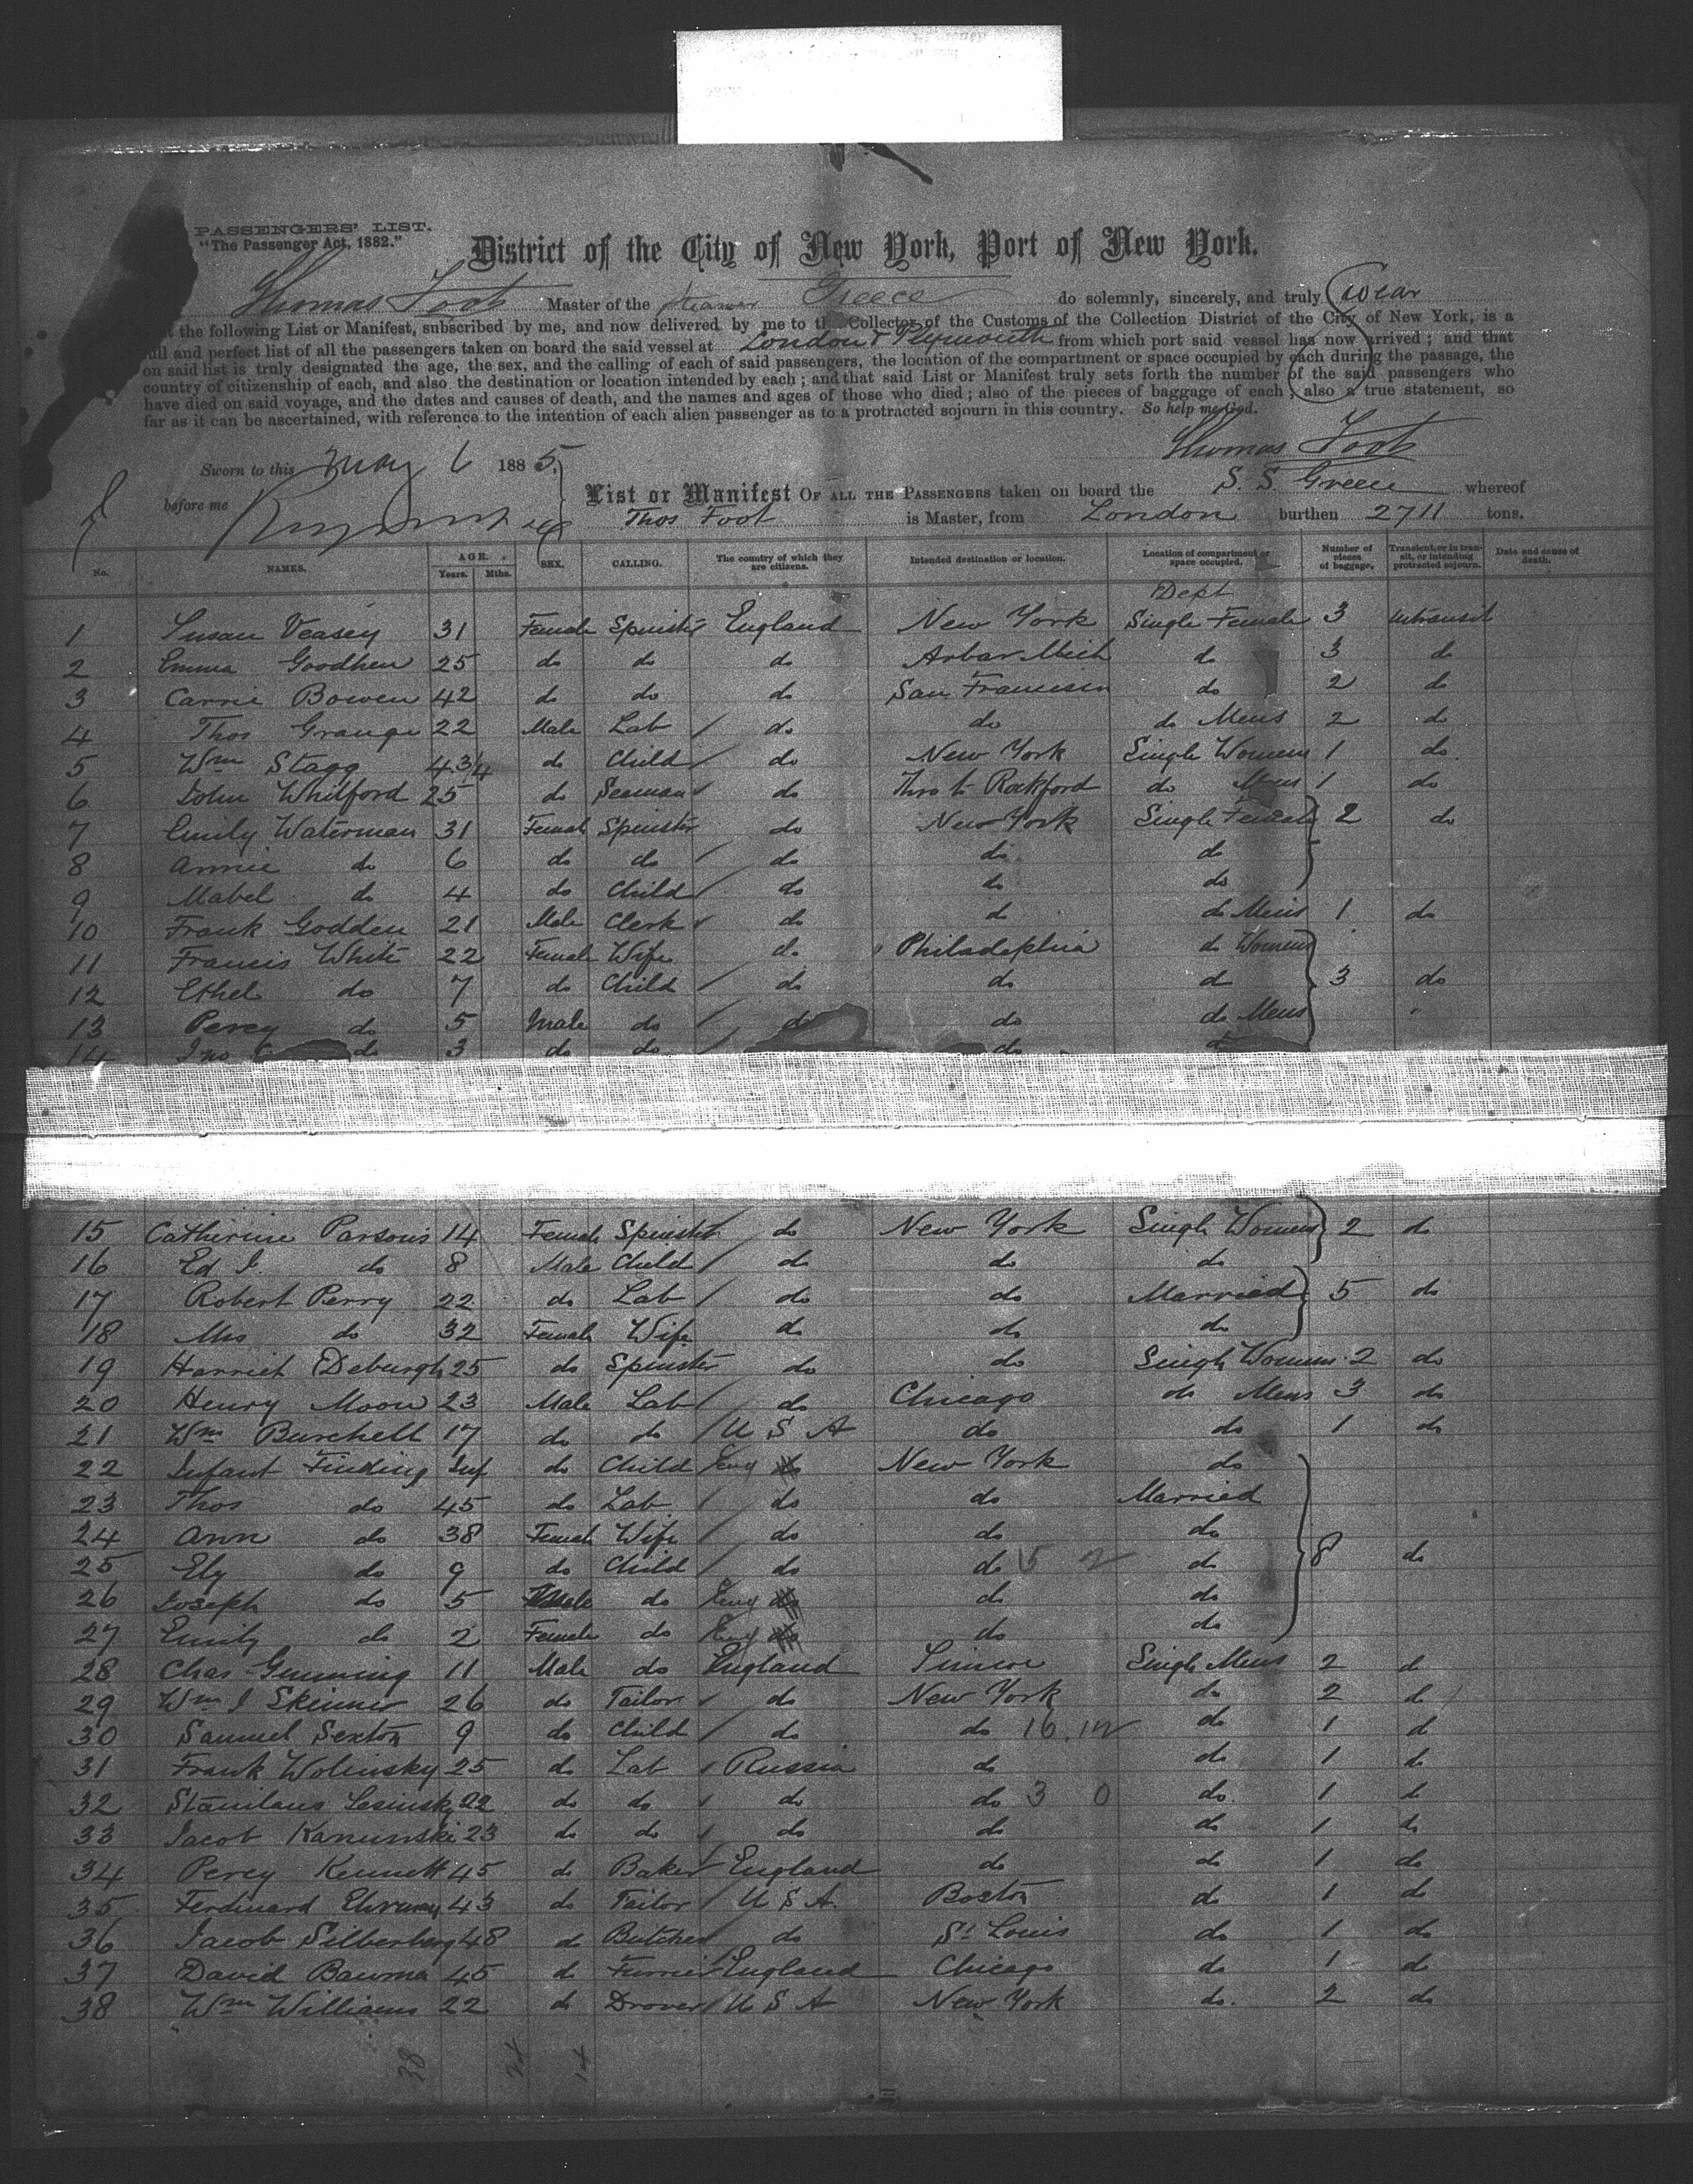 PASSENGERS' LIST.
"The Passenger Act, 1882."
District of the City of New York, Port of New York.
Thomas Foot Master of the steamer Greece do solemnly, sincerely, and truly swear
the following List or Manifest, subscribed by me, and now delivered by me to the Collector of the Customs of the Collection District of the City of New York, is a
full and perfect list of all the passengers taken on board the said vessel at London & Plymouth from which port said vessel has now arrived; and that
on said list is truly designated the age, the sex, and the calling of each of said passengers, the location of the compartment or space occupied by each during the passage, the
country of citizenship of each, and also the destination or location intended by each; and that said List or Manifest truly sets forth the number of the said passengers who
have died on said voyage, and the dates and causes of death, and the names and ages of those who died; also of the pieces of baggage of each; also a true statement, so
far as it can be ascertained, with reference to the intention of each alien passenger as to a protracted sojourn in this country. So help me God.
Thomas Foot
Sworn to this May 6 1885.
before me
List or Manifest OF ALL THE PASSENGERS taken on board the S. S. Greece whereof
Thos Foot is Master, from London burthen 2711 tons.
No. NAMES. AGE. Years. Mths. SEX. CALLING. The country of which they are citizens. Intended destination or location. Location of compartment or space occupied. Number of pieces of baggage. Transient, or in transit, or intending protracted sojourn. Date and cause of death.
Dept
1 Susan Veasey 31 Female Spinster England New York Single Female 3 intransit
2 Emma Goodhew 25 do do do Arbar Mich do 3 do
3 Carrie Bowen 42 do do do San Francisco do 2 do
4 Thos Grange 22 Male Lab do do do Mens 2 do
5 Wm Stagg 4 3/4 do Child do New York Single Womens 1 do
6 John Whilford 25 do Seeman do Thro to Rockford do Mens 1 do
7 Emily Waterman 31 Female Spinster do New York Single Female 2 do
8 Annie do 6 do do do do do
9 Mabel do 4 do Child do do do
10 Frank Godden 21 Male Clerk do do do Mens 1 do
11 Francis White 22 Female Wife do Philadelphia do Womens
12 Ethel do 7 do Child do do do 3 do
13 Percy do 5 Male do do do do Mens
14 Jno do 3 do do do do
15 Catherine Parsons 14 Female Spinster do New York Single Womens 2 do
16 Ed J. do 8 Male Child do do do
17 Robert Perry 22 do Lab do do Married 5 do
18 Mrs do 32 Female Wife do do do
19 Harriet Deburgh 25 do Spinster do do Single Womens 2 do
20 Henry Moon 23 Male Lab do Chicago do Mens 3 do
21 Wm Burchell 17 do do U S A do do 1 do
22 Infant Finding Inf do Child Eng do New York do
23 Thos do 45 do Lab do do Married
24 Ann do 38 Female Wife do do do
25 Ely do 9 do Child do do 5 2 do 8 do
26 Joseph do 5 Male do Eng do do do
27 Emily do 2 Female do Eng do do do
28 Chas Gunning 11 Male do England Simcoe Single Mens 2 do
29 Wm J Skinner 26 do Tailor do New York do 2 do
30 Samuel Sexton 9 do Child do do 16 do 1 do
31 Frank Wolinsky 25 do Lab Russia do do 1 do
32 Stanilaus Lesinsky 22 do do do do 3 0 do 1 do
33 Jacob Kanunski 23 do do do do do 1 do
34 Percy Kennett 45 do Baker England do do 1 do
35 Ferdinard 43 do Tailor U S A. Boston do 1 do
36 Jacob Silberberg 48 do Butcher do St Louis do 1 do
37 David Bauma 45 do Furrier England Chicago do 1 do
38 Wm Williams 22 do Drover U S A New York do. 2 do
38 24 14